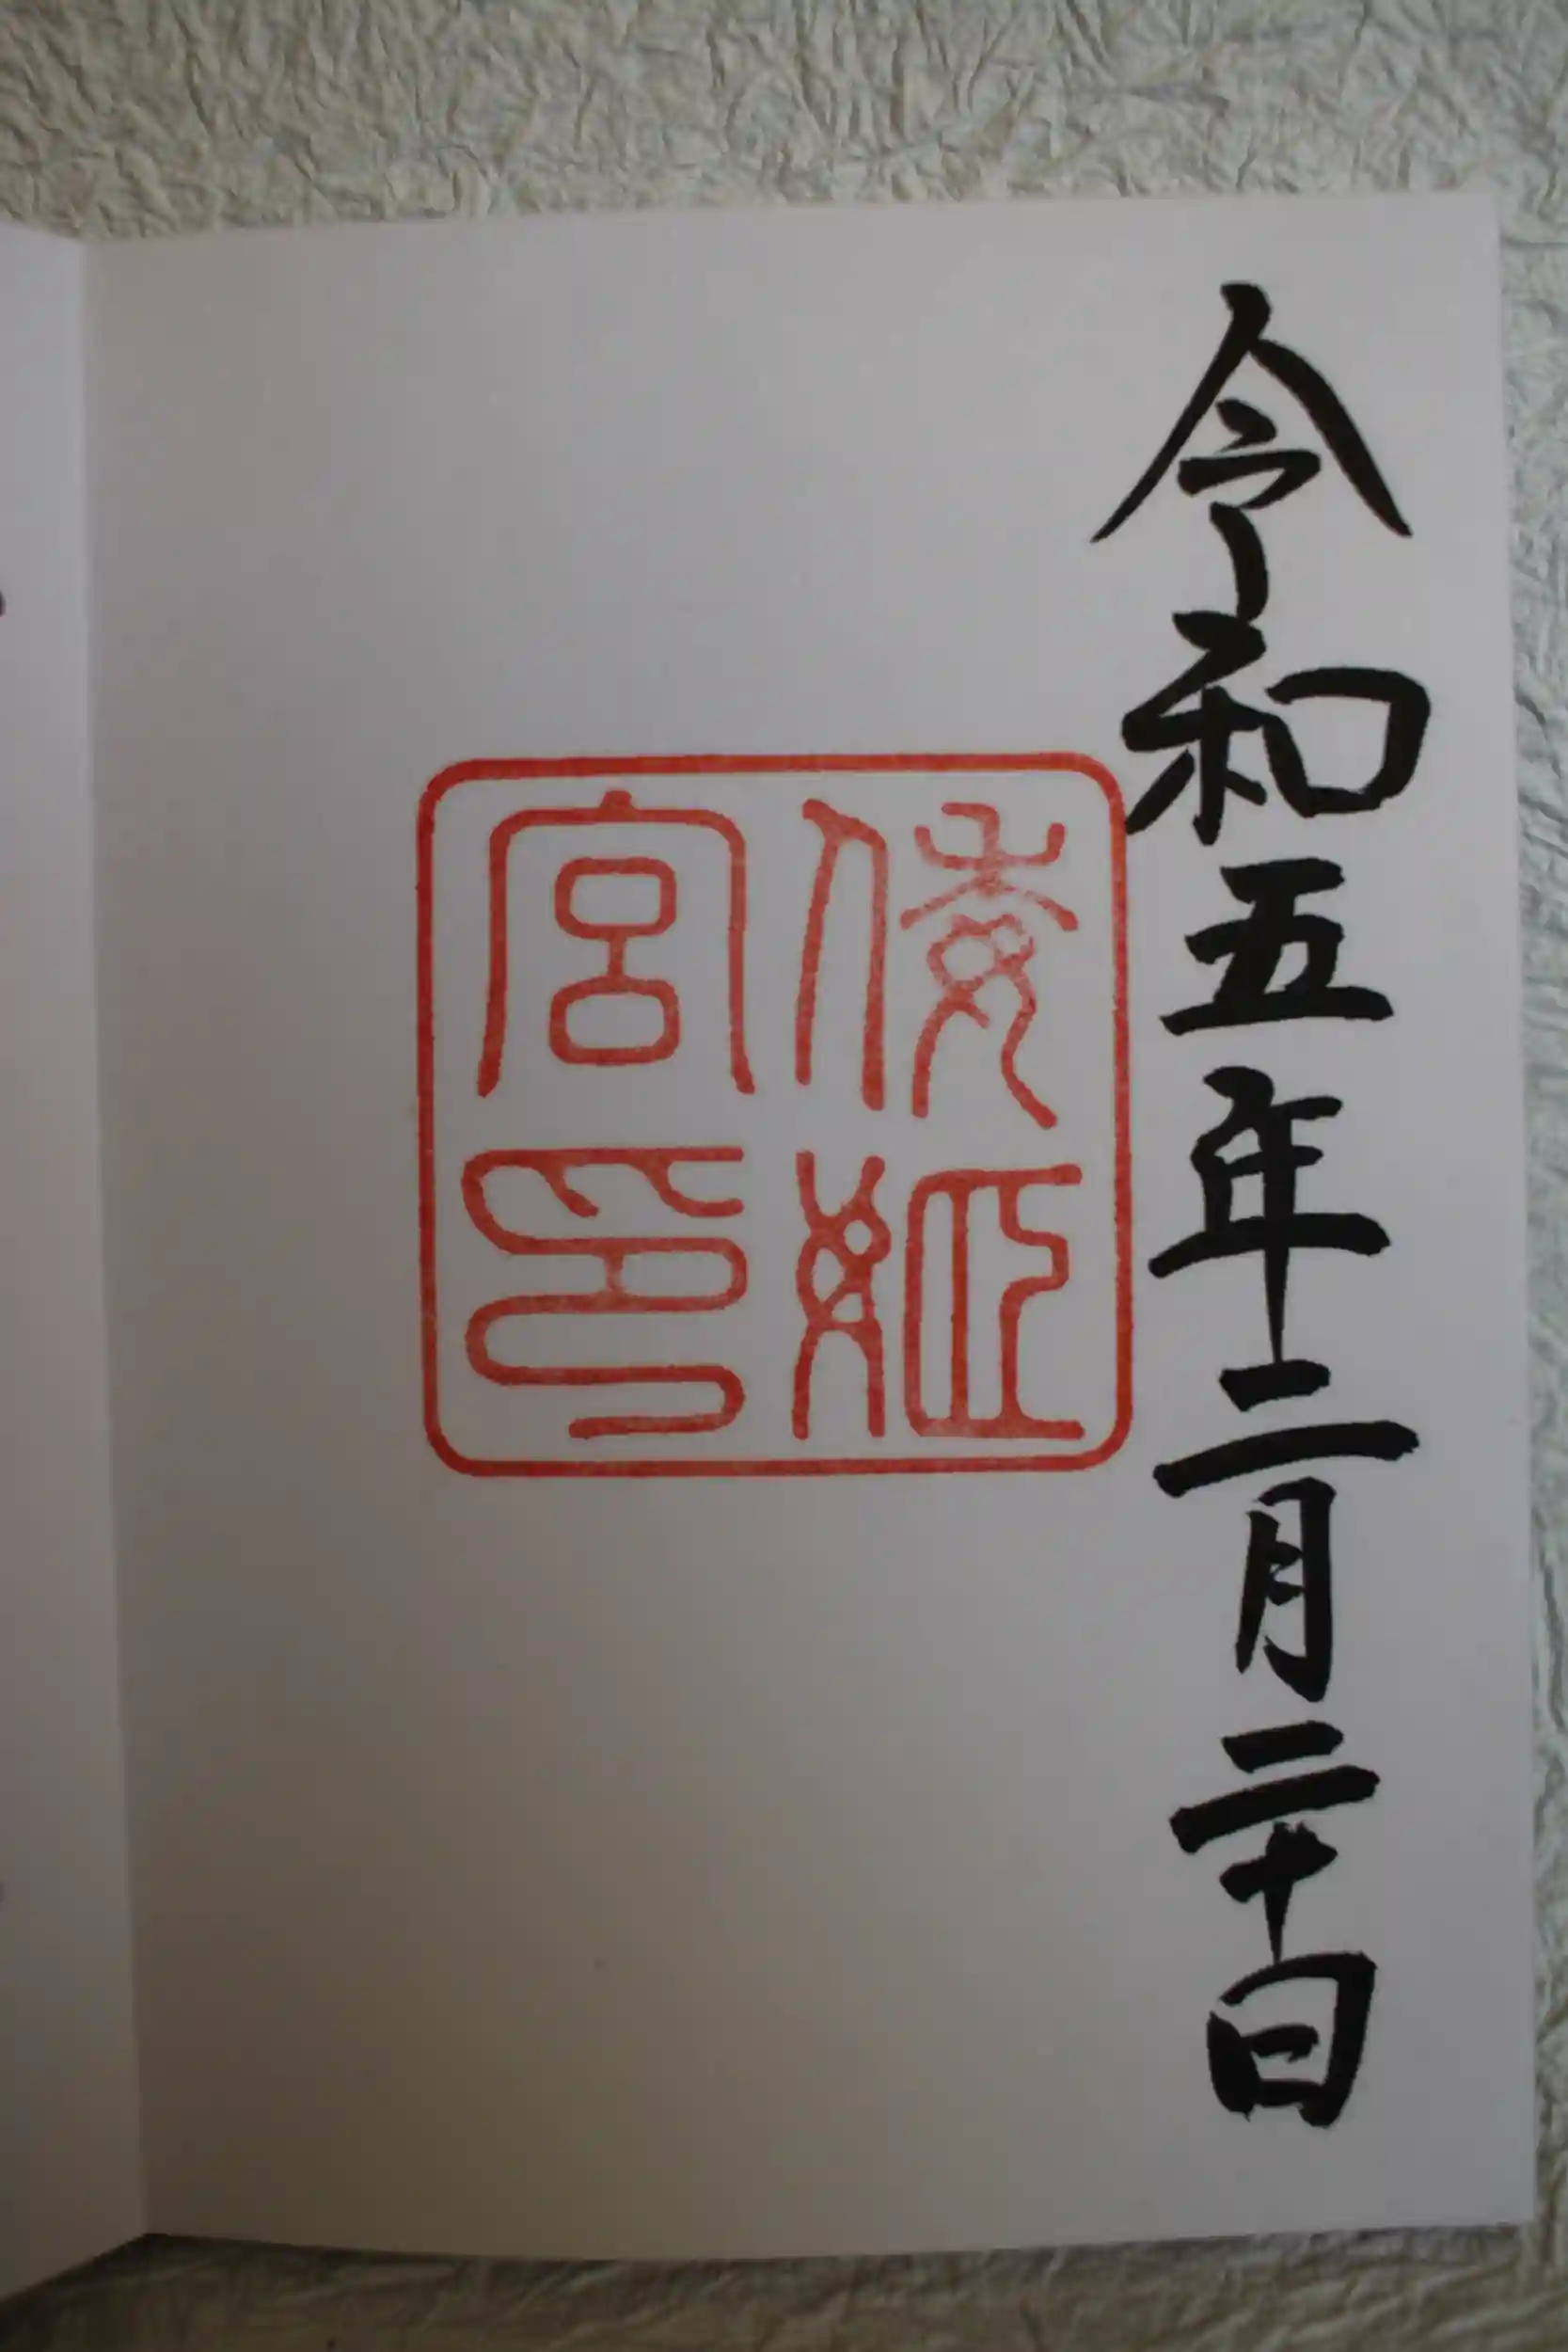 令和五年二月二十日
倭姫
宮印